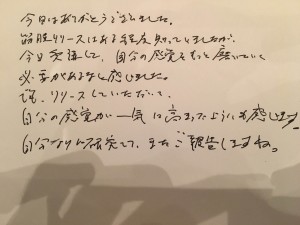 今日はありがとうございました。
筋膜リリースはある程度知っていましたが、
今日受講して、自分の感覚をもっと磨いていく
必要があるなと感じました。
でも、リリースしていただいて、
自分の感覚が一気に高まったようにも感じます。
自分なりに研究して、またご報告しますね。